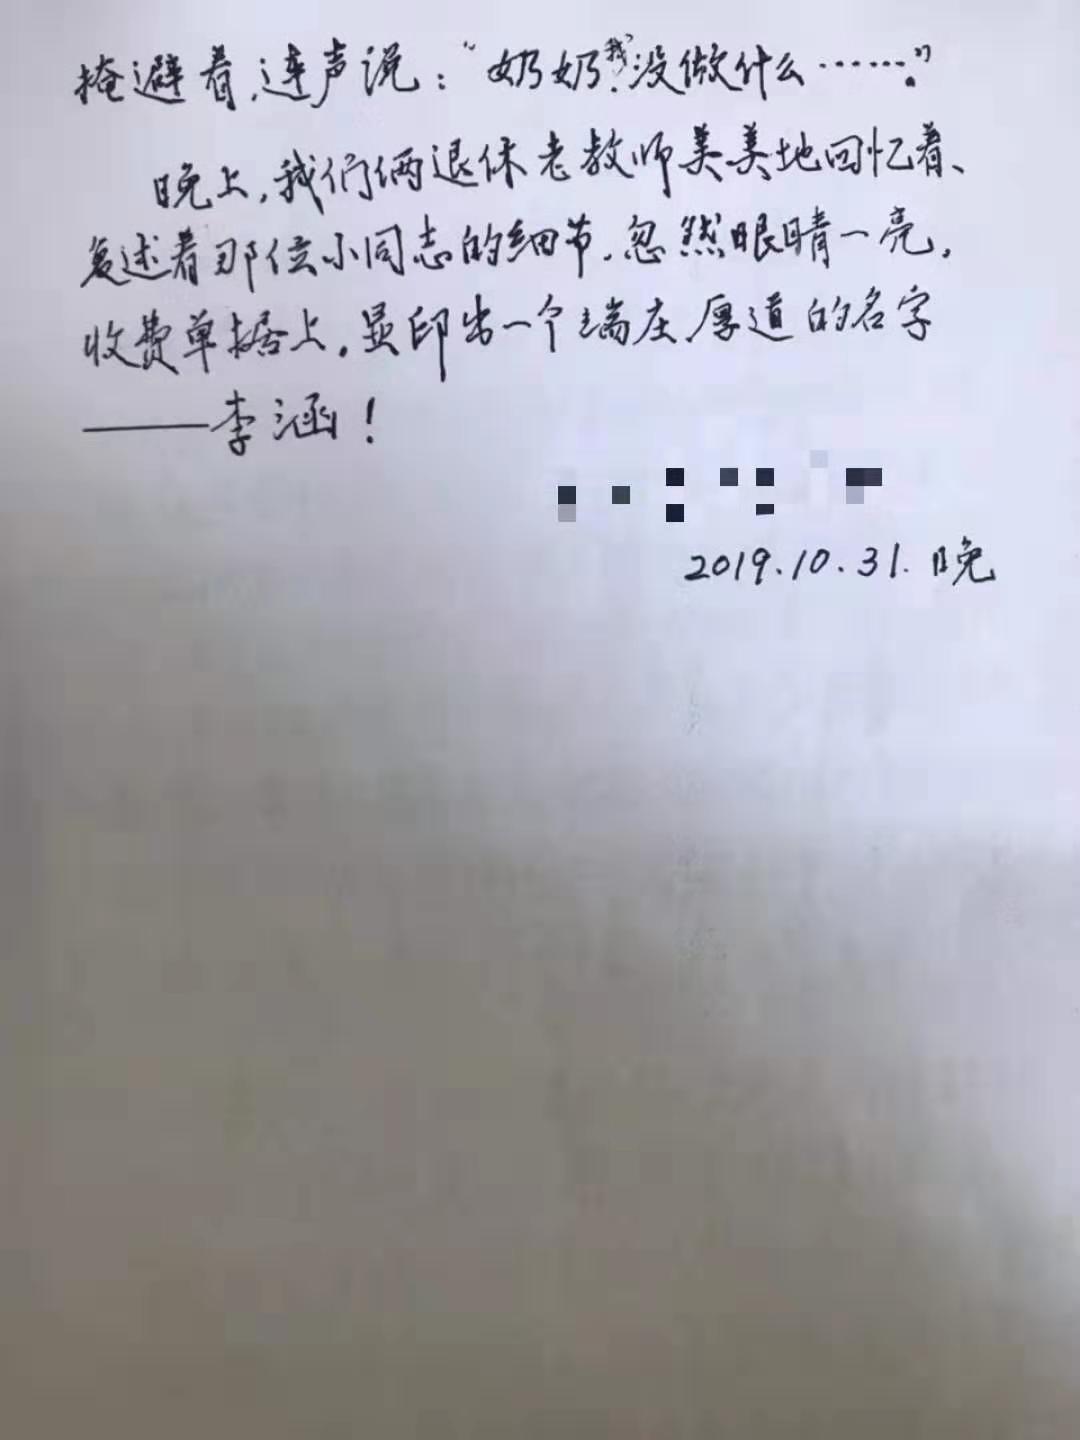 掩避着，连声说：“奶奶，我没做什么…….”
晚上，我们俩退休老教师美美地回忆着、
复述着那位小同志的细节。忽然眼睛一亮，
收费单据上，显印出一个端庄、厚道的名字
——李涵！
2019.10.31.晚